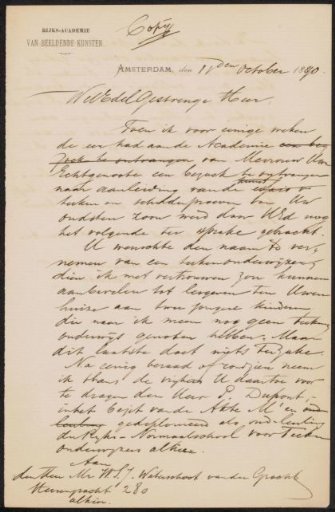 RIJKS-ACADEMIE
VAN BEELDENDE KUNSTEN
Copy
AMSTERDAM, den 11den October 1890
WelEdelGestrenge Heer,
Toen ik voor eenige weken
de eer had aan de Academie een be-
zoek te ontvangen van Mevrouw Uw
Echtgenoote een bezoek te ontvangen
naar aanleiding van de
teeken en schilderproeven van Uw
oudsten zoon werd door ZEd nog
het volgende ter sprake gebracht.
U wenschte den naam te ver-
nemen van een teekenonderwijzer,
dien ik met vertrouwen zou kunnen
aanbevelen tot lesgeven ten Uwen
huize aan twee jongere kinderen
die naar ik meen nog geen teeken
onderwijs genoten hebben. Maar
dit laatste doet niets ter zake.
Na eenig beraad of rondzien neem
ik thans de vrijheid U daartoe voor
te dragen den Heer Dupont,
in het bezit van de Akte M en
gediplomeerd als oud-leerling
de Rijks-Normaalschool voor Teeken
onderwijzers alhier.
Aan
den Heer Mr. H.S.J. Waterschoot van der Gracht
Heerengracht 280
alhier.